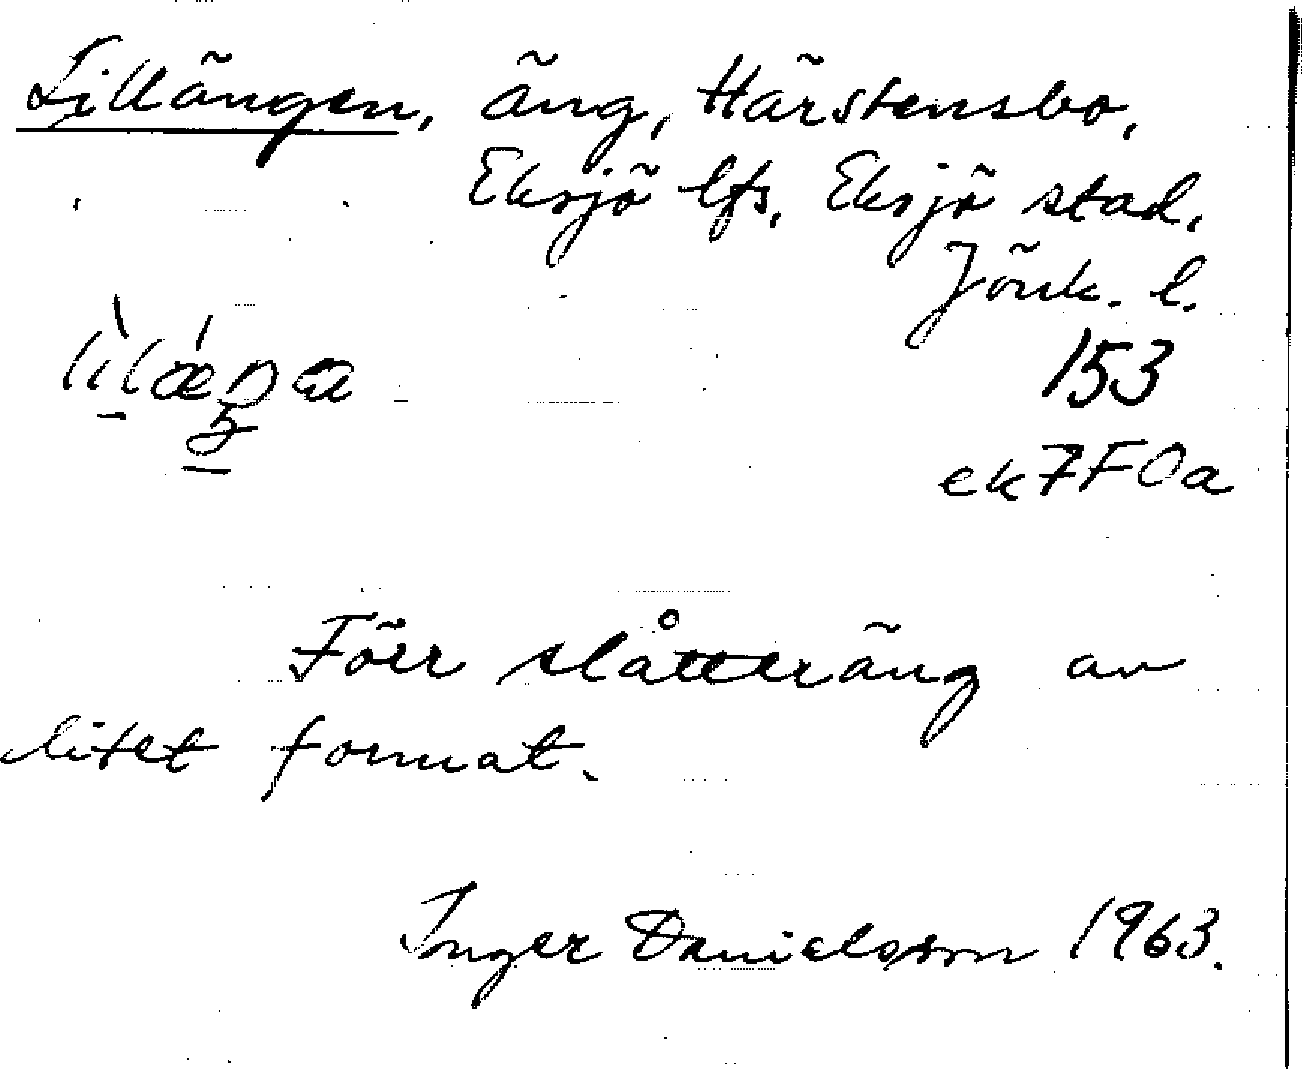 Lillängen, äng, Härstensbo,
Eksjö lfs, Eksjö stad,
Jönk. l.
153
ek7F0a
Förr slåtteräng av
litet format.
Inger Danielsson 1963.